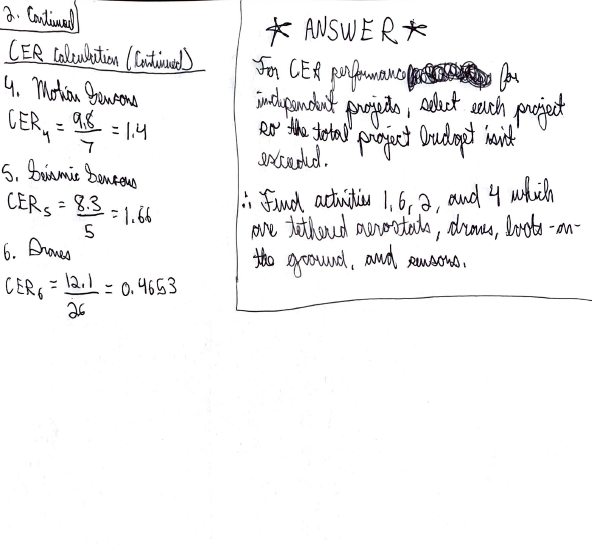 2. Continued
CER Calculation (Continued)
4. Motion Sensors
CER₄ = 9.8/7 = 1.4
5. Seismic Sensors
CER₅ = 8.3/5 = 1.66
6. Drones
CER₆ = 12.1/26 = 0.4653
* ANSWER *
For CER performance for
independent projects, select each project
so the total project budget isn't
exceeded.
∴ Find activities 1, 6, 2, and 4 which
are tethered aerostats, drones, boots-on-
the ground, and sensors.